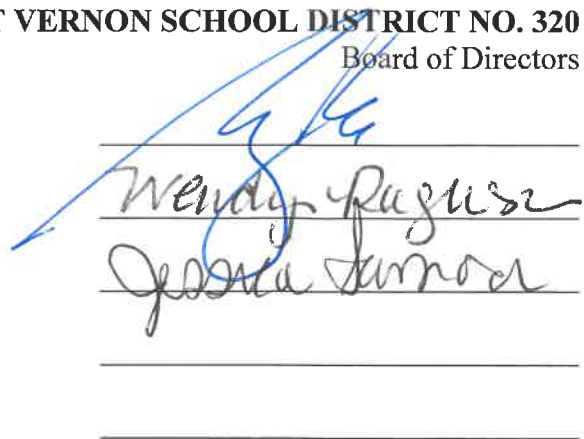 T VERNON SCHOOL DISTRICT NO. 320
Board of Directors
Wendy Ragusa
Jessica